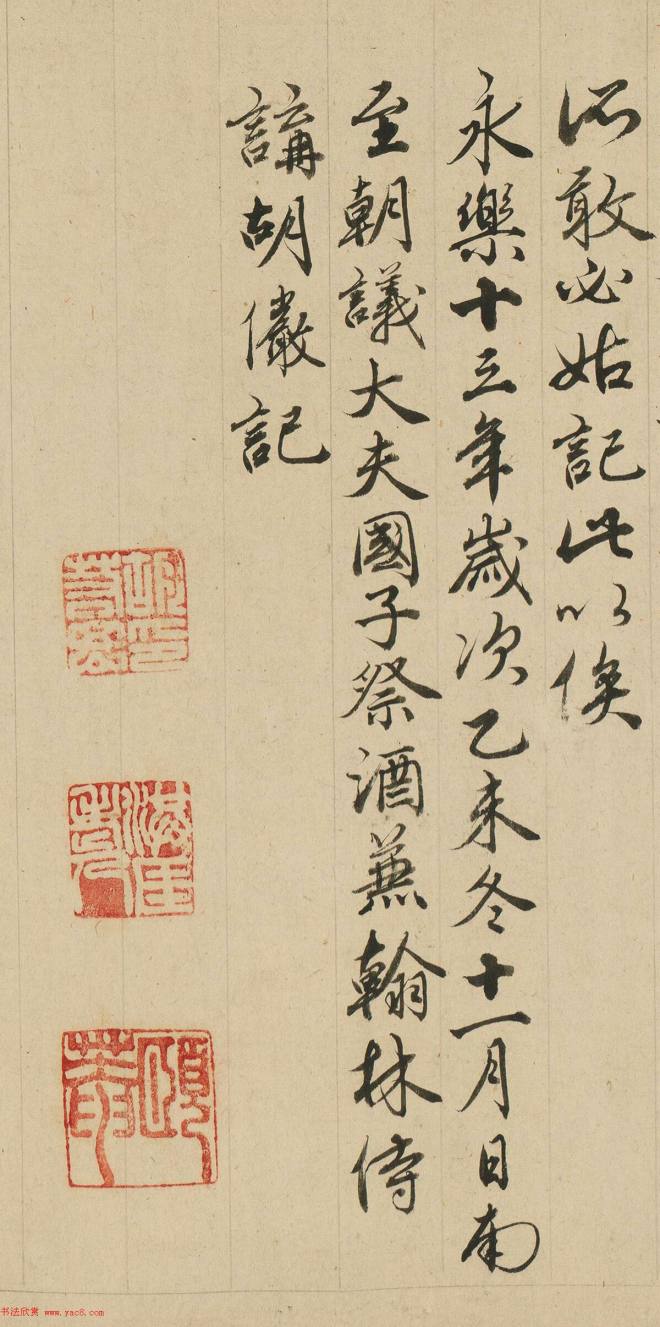 所敢必姑記此以俟
永樂十三年歲次乙未冬十一月日南
至朝議大夫國子祭酒兼翰林侍
講胡儼記
頤菴
书法欣赏 www.yac8.com